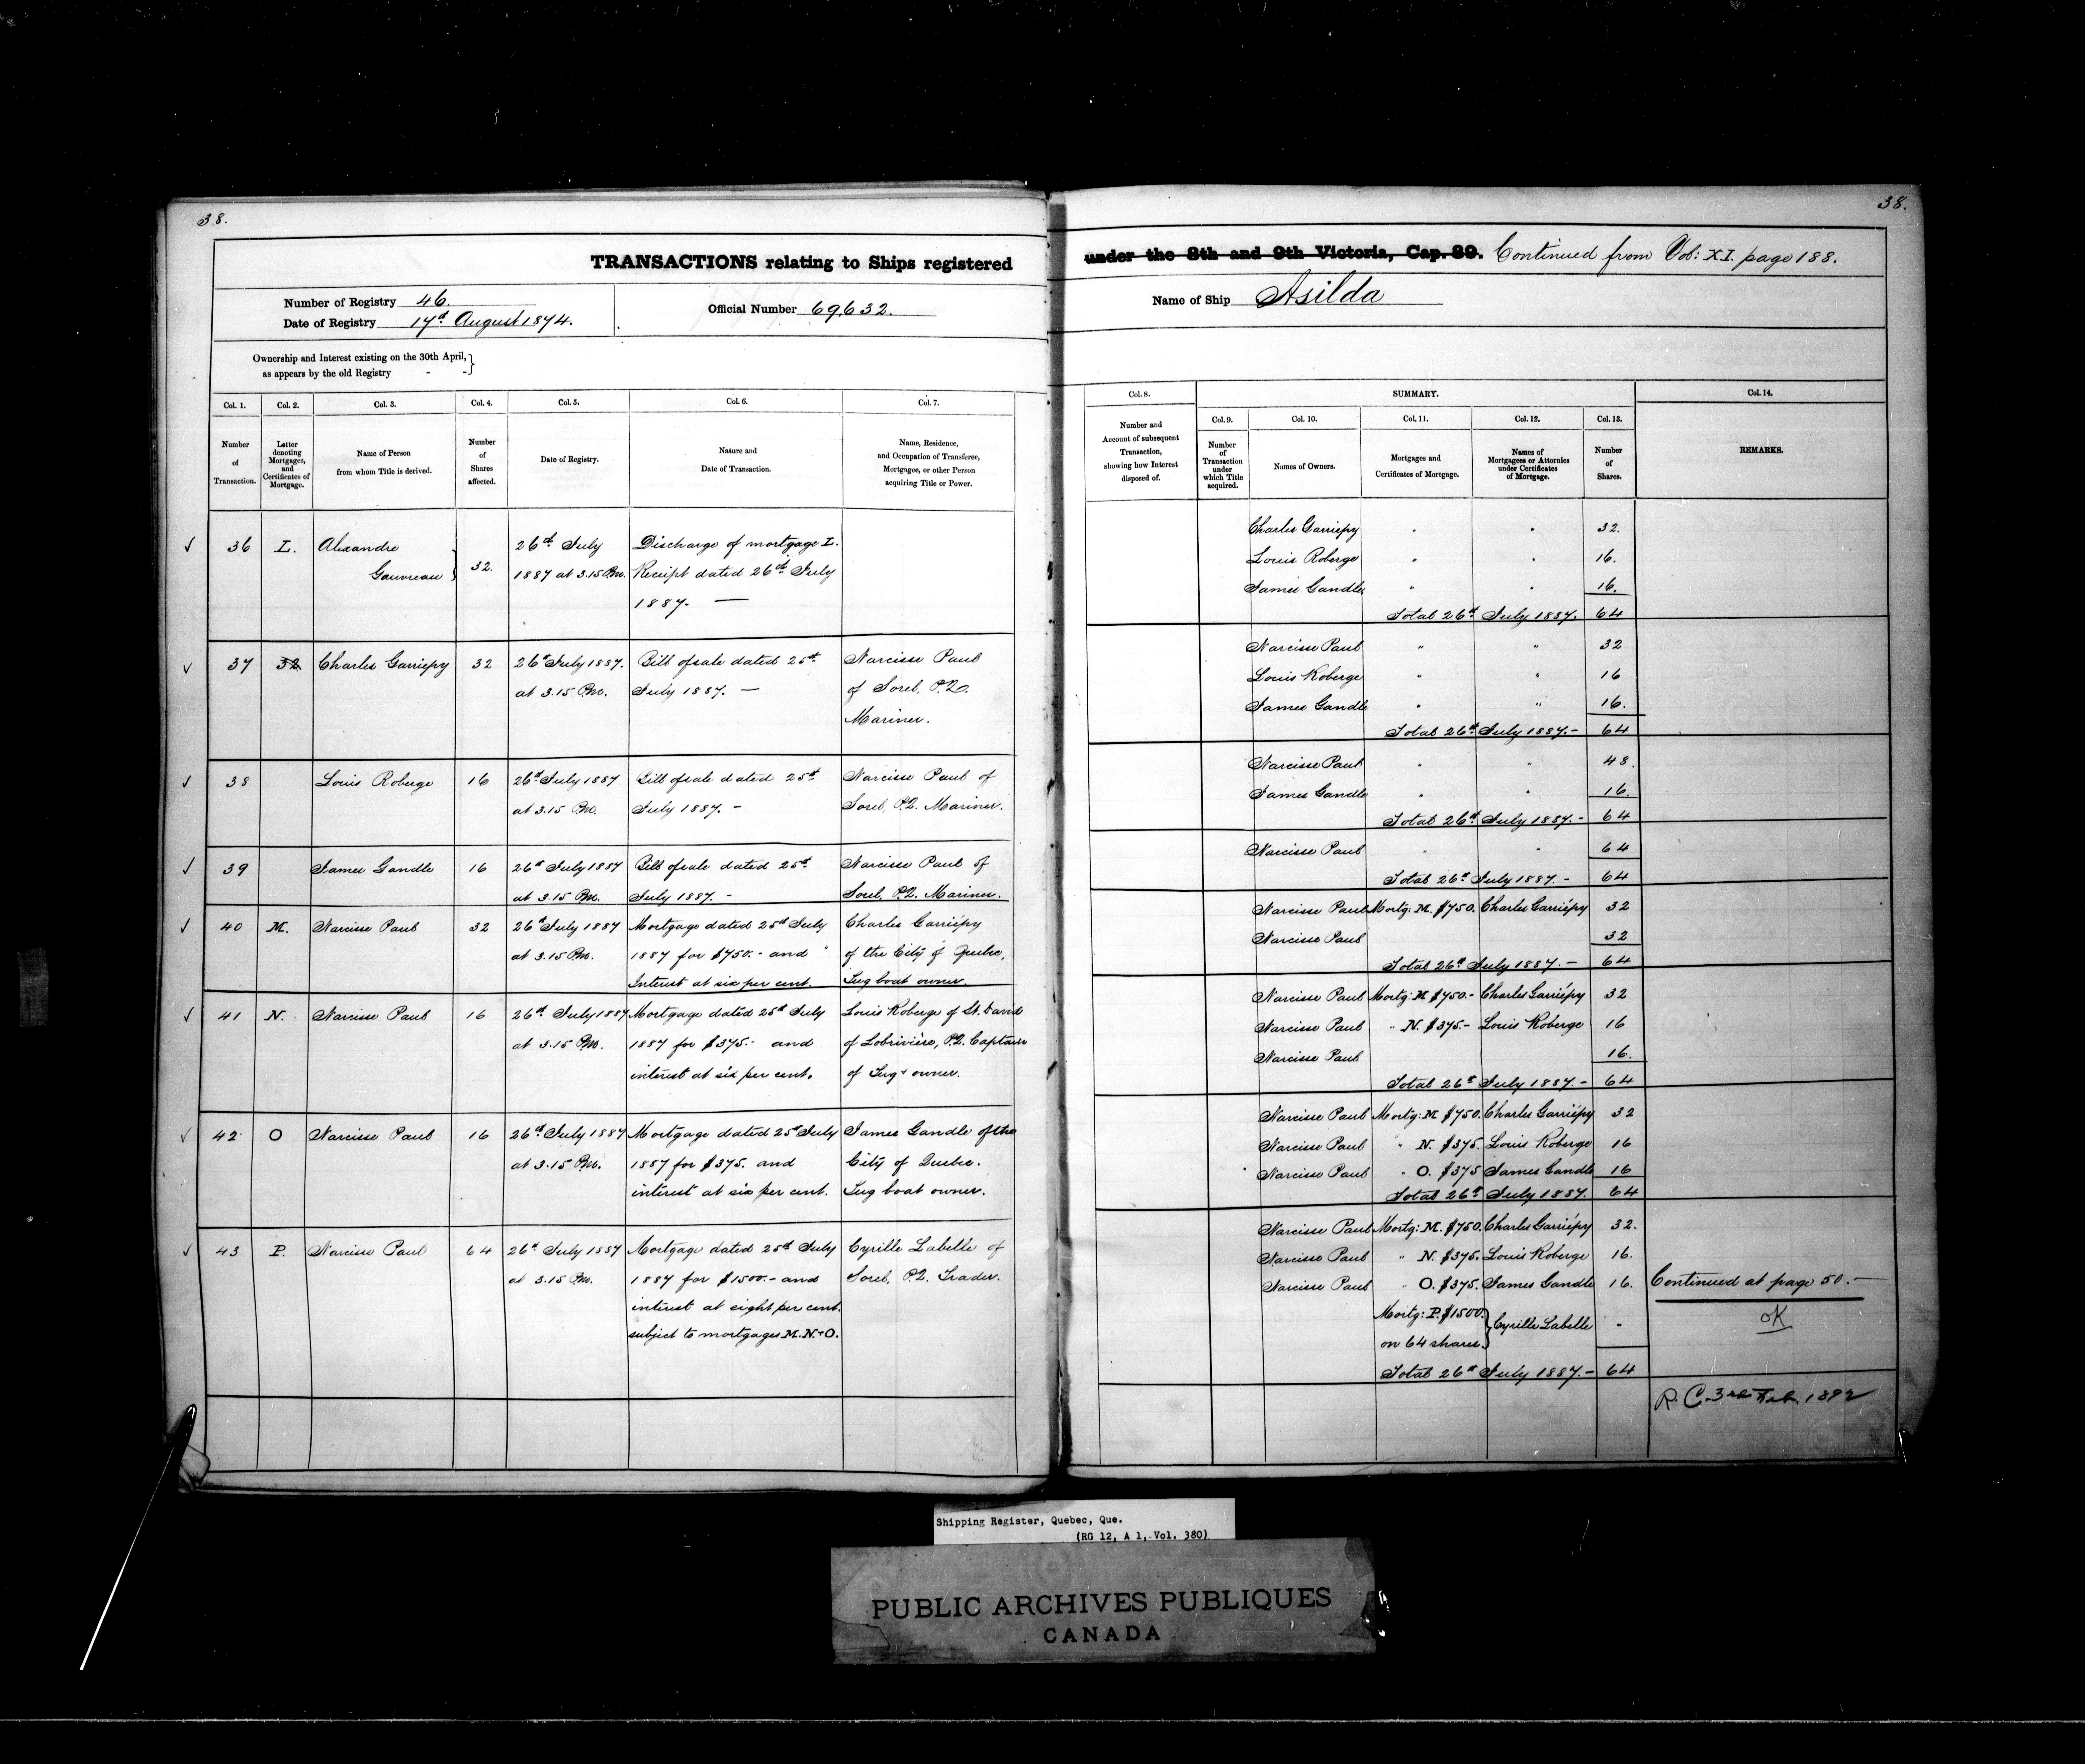 38.
TRANSACTIONS relating to Ships registered
Number of Registry 46.
Date of Registry 17th August 1874.
Official Number 69,632.
Ownership and Interest existing on the 30th April,
as appears by the old Registry - -
Col. 1. Col. 2. Col. 3. Col. 4. Col. 5. Col. 6. Col. 7.
Number of Transaction.
Letter denoting Mortgages, and Certificates of Mortgage.
Name of Person from whom Title is derived.
Number of Shares affected.
Date of Registry.
Nature and Date of Transaction.
Name, Residence, and Occupation of Transferee, Mortgagee, or other Person acquiring Title or Power.
36 L. Alexandre 26th July Discharge of mortgage L.
Gauvreau 32. 1887 at 3.15 Pm. Receipt dated 26th July
1887. —
37 32 Charles Garriepy 32 26th July 1887. Bill of sale dated 25th Narcisse Paul
at 3.15 Pm. July 1887. — of Sorel, P.Q.
Mariner.
38 Louis Roberge 16 26th July 1887 Bill of sale dated 25th Narcisse Paul of
at 3.15 Pm. July 1887. - Sorel, P.Q. Mariner.
39 James Gandle 16 26th July 1887 Bill of sale dated 25th Narcisse Paul of
at 3.15 Pm. July 1887. - Sorel, P.Q. Mariner.
40 M. Narcisse Paul 32 26th July 1887 Mortgage dated 25th July Charles Garriépy
at 3.15 Pm. 1887 for $750.- and of the City of Quebec,
Interest at six per cent. Tug boat owner.
41 N. Narcisse Paul 16 26th July 1887 Mortgage dated 25th July Louis Roberge of St. David
at 3.15 Pm. 1887 for $375.- and of Lobrivière, P.Q. Captain
interest at six per cent. of Tug & owner.
42 O Narcisse Paul 16 26th July 1887 Mortgage dated 25th July James Gandle of the
at 3.15 Pm. 1887 for $375. and City of Quebec.
interest at six per cent. Tug boat owner.
43 P. Narcisse Paul 64 26th July 1887 Mortgage dated 25th July Cyrille Labelle of
at 3.15 Pm. 1887 for $1500.- and Sorel, P.Q. Trader.
interest at eight per cent.
subject to mortgages M.N.+O.
38.
under the 8th and 9th Victoria, Cap. 89. Continued from Vol: XI. page 188.
Name of Ship Asilda
Col. 8. SUMMARY. Col. 14.
Col. 9. Col. 10. Col. 11. Col. 12. Col. 13.
Number and Account of subsequent Transaction, showing how Interest disposed of.
Number of Transaction under which Title acquired.
Names of Owners.
Mortgages and Certificates of Mortgage.
Names of Mortgagees or Attornies under Certificates of Mortgage.
Number of Shares.
REMARKS.
Charles Garriepy " " 32.
Louis Roberge " " 16.
James Gandle " " 16.
Total 26th July 1887. 64
Narcisse Paul " " 32
Louis Roberge " " 16
James Gandle " " 16.
Total 26th July 1887.- 64
Narcisse Paul " " 48
James Gandle " " 16.
Total 26th July 1887.- 64
Narcisse Paul " " 64
Total 26th July 1887.- 64
Narcisse Paul Mortg: M. $750. Charles Garriépy 32
Narcisse Paul 32
Total 26th July 1887.- 64
Narcisse Paul Mortg: M $750.- Charles Garriépy 32
Narcisse Paul " N. $375.- Louis Roberge 16
Narcisse Paul 16.
Total 26th July 1887.- 64
Narcisse Paul Mortg: M $750. Charles Garriépy 32
Narcisse Paul " N. $375. Louis Roberge 16
Narcisse Paul " O. $375 James Gandle 16
Total 26th July 1887. 64
Narcisse Paul Mortg: M. $750. Charles Garriépy 32.
Narcisse Paul " N. $375. Louis Roberge 16.
Narcisse Paul " O. $375. James Gandle 16. Continued at page 50.—
Mortg: P. $1500. Cyrille Labelle " OK
on 64 shares
Total 26th July 1887.- 64
R. C. 3rd Feb. 1892
Shipping Register, Quebec, Que.
(RG 12, A 1, Vol. 380)
PUBLIC ARCHIVES PUBLIQUES
CANADA